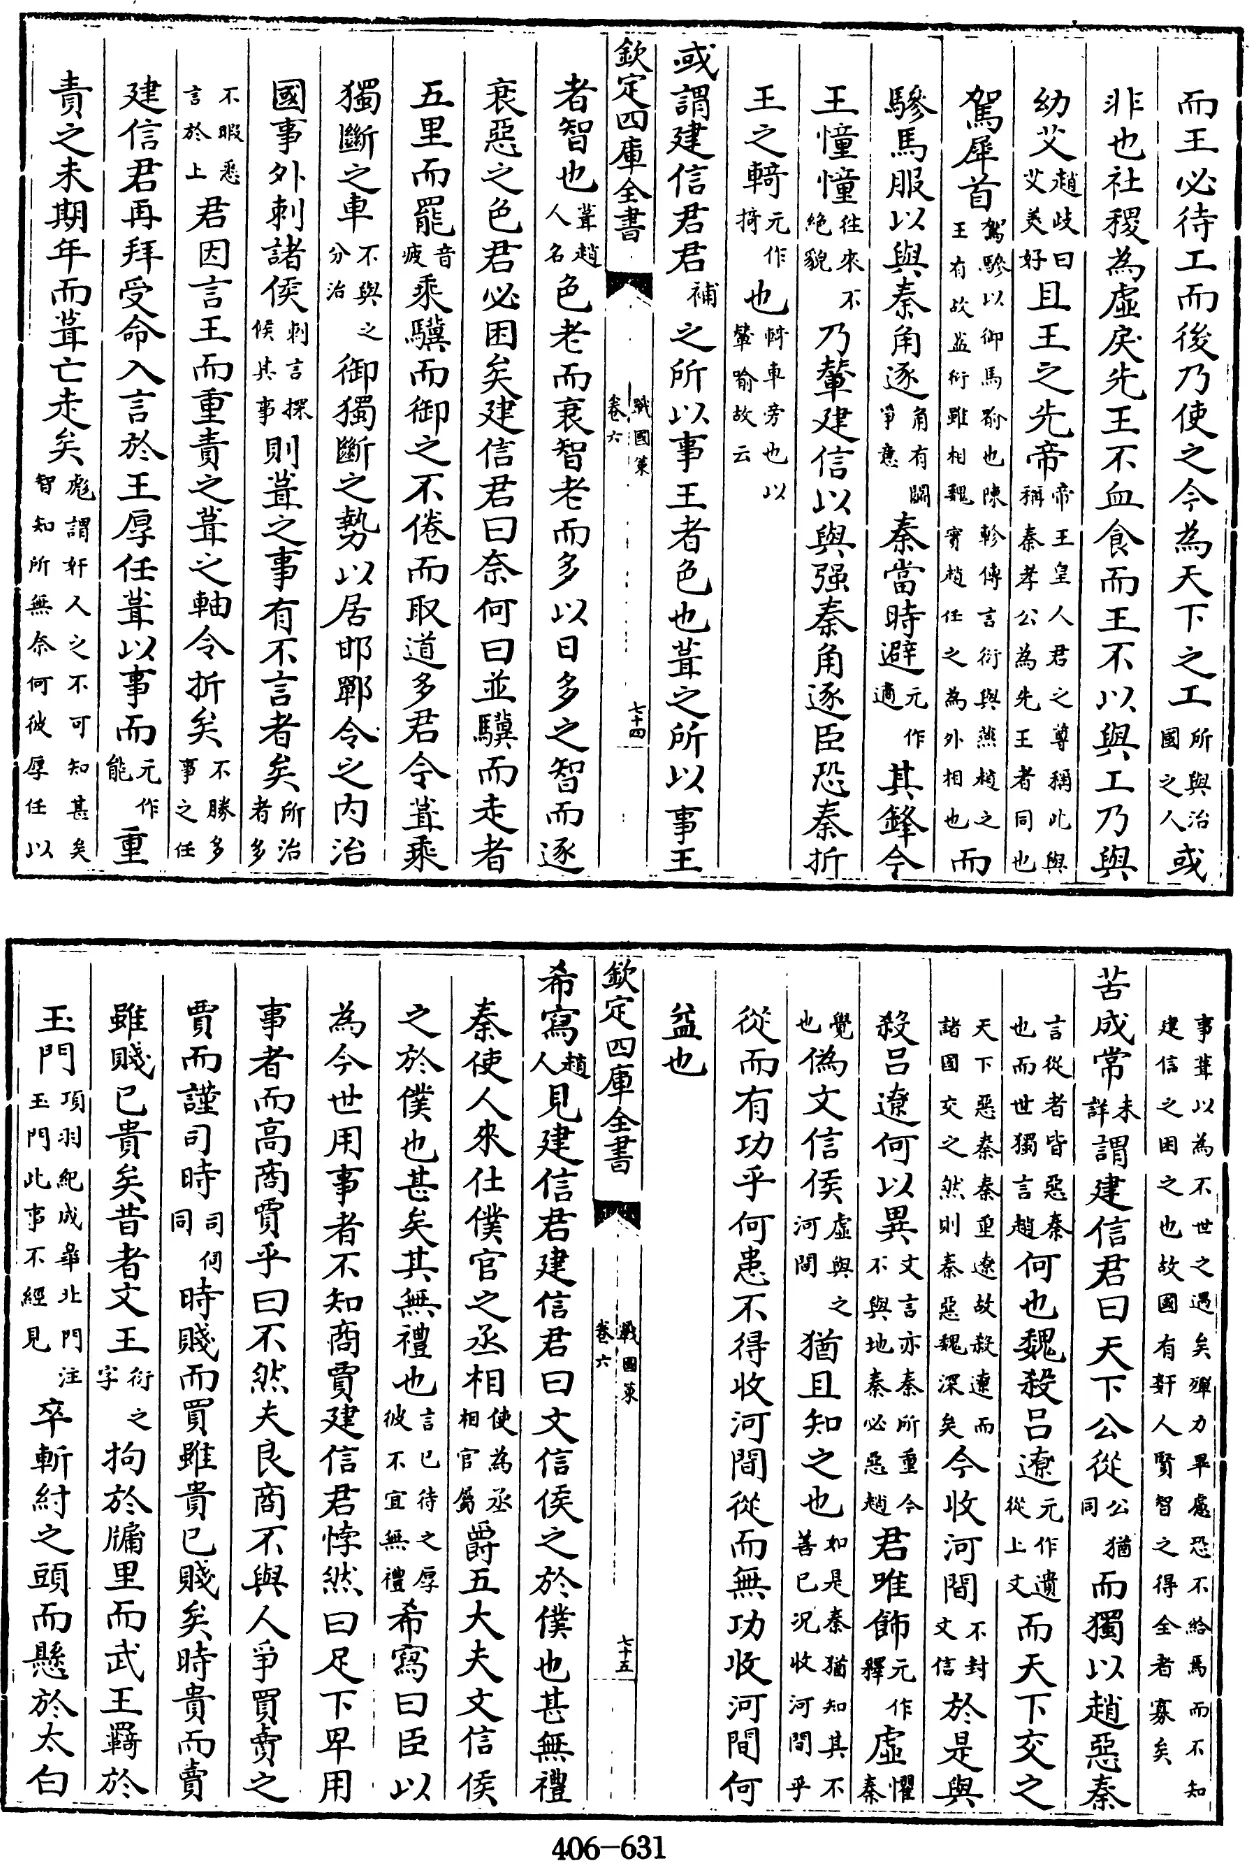 而王必待工而後乃使之今為天下之工所與治國之人或
非也社稷為虛戾先王不血食而王不以與工乃與
幼艾趙岐曰艾美好且王之先帝帝王皇人君之尊稱此與稱秦孝公為先王者同也
駕犀首駕驂以御馬喻也陳軫傳言衍與燕趙之王有故蓋衍雖相魏實趙任之為外相也而
驂馬服以與秦角逐角有鬬爭意秦當時避元作適其鋒今
王憧憧往來不絶貌乃輦建信以與强秦角逐臣恐秦折
王之輢元作掎也輢車旁也以輦喻故云
或謂建信君君補之所以事王者色也葺之所以事王
欽定四庫全書
戰國策
卷六
七十四
者智也葺趙人名色老而衰智老而多以日多之智而逐
衰惡之色君必困矣建信君曰奈何曰並驥而走者
五里而罷音疲乘驥而御之不倦而取道多君令葺乘
獨斷之車不與之分治御獨斷之勢以居邯鄲令之内治
國事外刺諸侯刺言探候其事則葺之事有不言者矣所治者多
不暇悉言於上君因言王而重責之葺之軸今折矣不勝多事之任
建信君再拜受命入言於王厚任葺以事而元作能重
責之未期年而葺亡走矣彪謂奸人之不可知甚矣智知所無奈何彼厚任以
事葺以為不世之遇矣殫力畢慮恐不給焉而不知建信之困之也故國有奸人賢智之得全者寡矣
苦成常未詳謂建信君曰天下公從公猶同而獨以趙惡秦
言從者皆惡秦也而世獨言趙何也魏殺呂遼元作遺從上文而天下交之
天下惡秦秦重遼故殺遼而諸國交之然則秦惡魏深矣今收河間不封文信於是與
殺呂遼何以異文言亦秦所重今不與地秦必惡趙君唯飾元作釋虛懼秦
覺也偽文信侯虛與之河間猶且知之也如是秦猶知其不善已况收河間乎
從而有功乎何患不得收河間從而無功收河間何
益也
欽定四庫全書
戰國策
卷六
七十五
希寫趙人見建信君建信君曰文信侯之於僕也甚無禮
秦使人來仕僕官之丞相使為丞相官屬爵五大夫文信侯
之於僕也甚矣其無禮也言已待之厚彼不宜無禮希寫曰臣以
為今世用事者不知商賈建信君悖然曰足下卑用
事者而高商賈乎曰不然夫良商不與人爭買賣之
賈而謹司時司伺同時賤而買雖貴已賤矣時貴而賣
雖賤已貴矣昔者文王衍之字拘於牖里而武王羈於
玉門項羽紀成皋北門注玉門此事不經見卒斬紂之頭而懸於太白
406-631